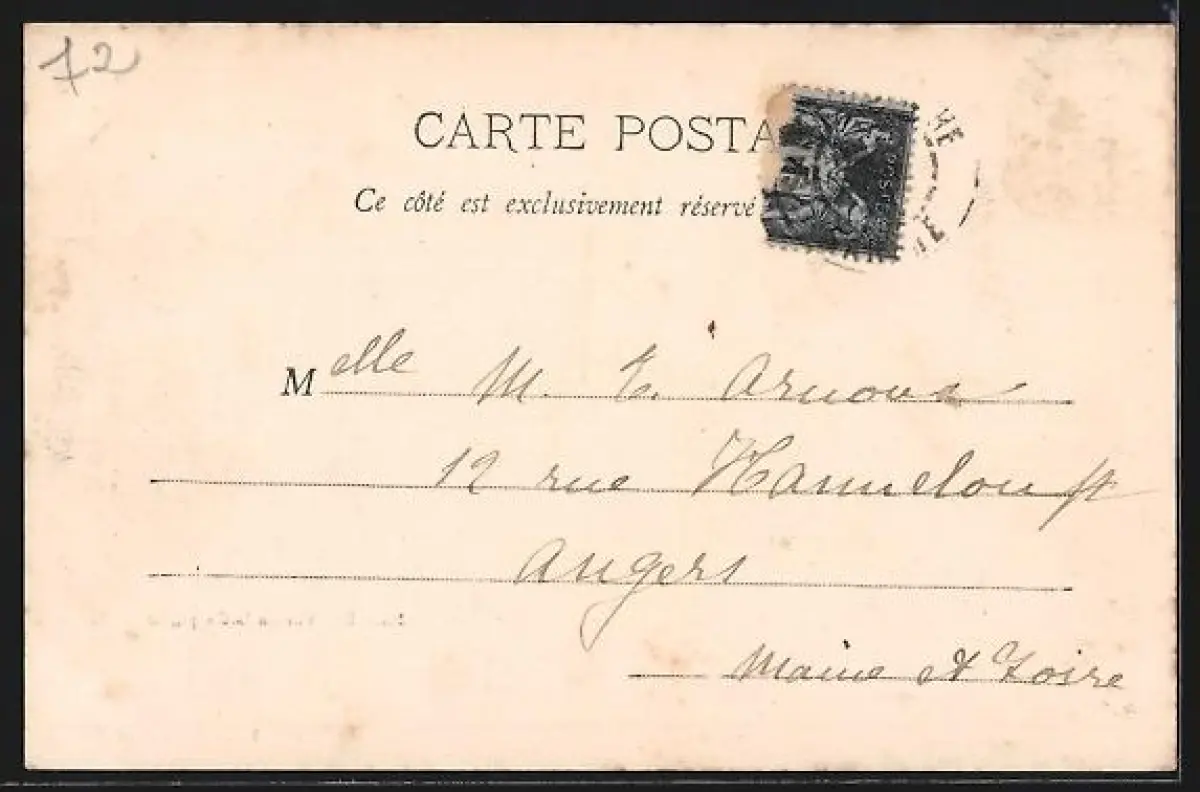 72
CARTE POSTA
Ce côté est exclusivement réservé
Melle M. E. Arnoua
12 rue Hanneloup
Angers
Maine et Loire